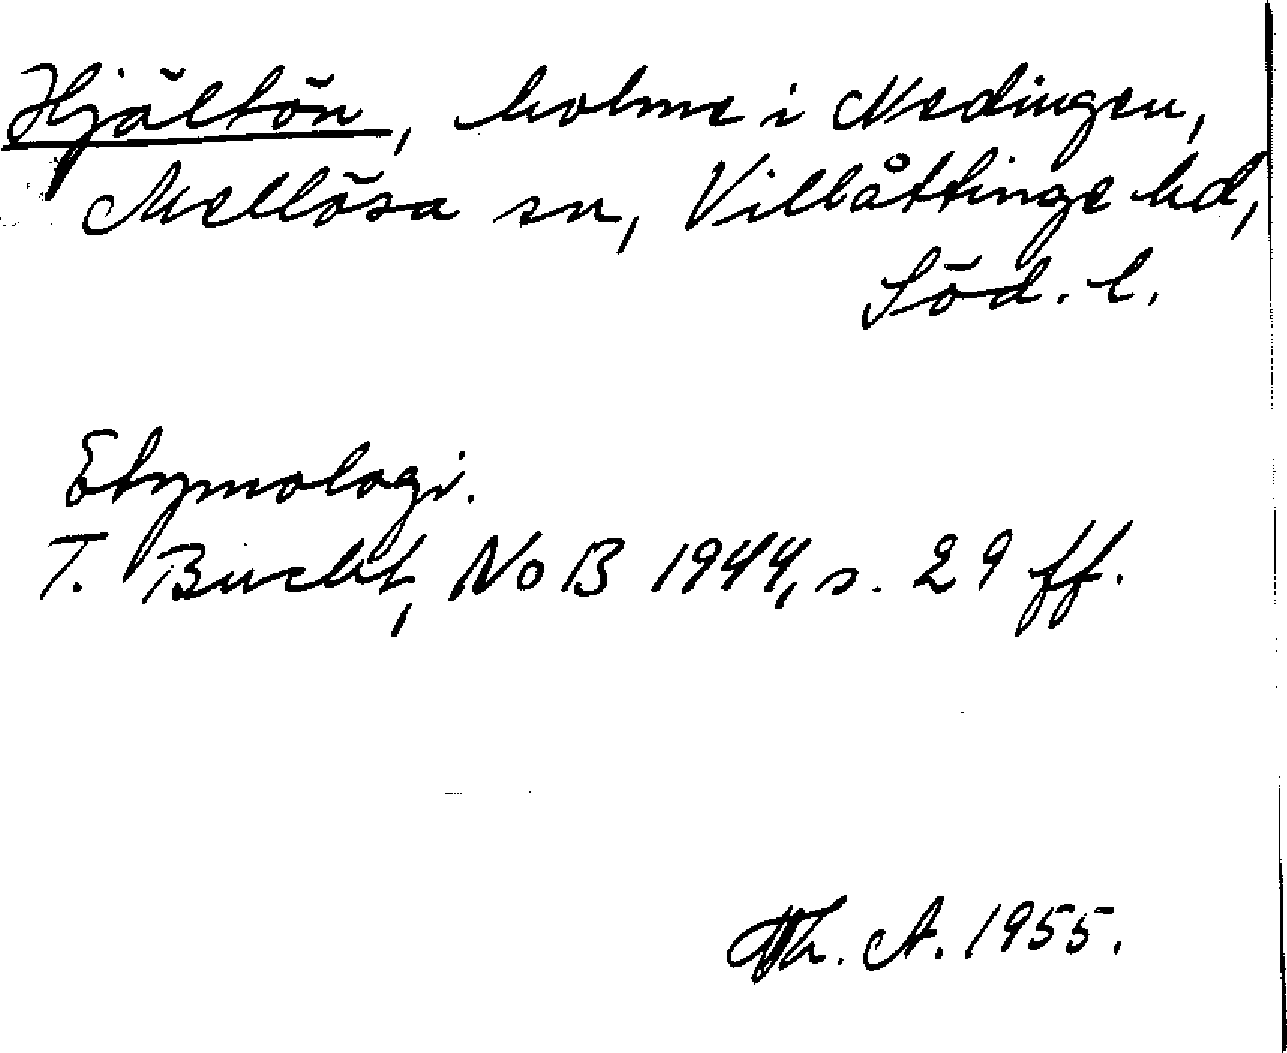 Hjältön, holme i Nedingen,
Mellösa sn, Villåttinge hd,
Söd. l.
Etymologi.
T. Bucht, NoB 1944, s. 29 ff.
Th. A. 1955.